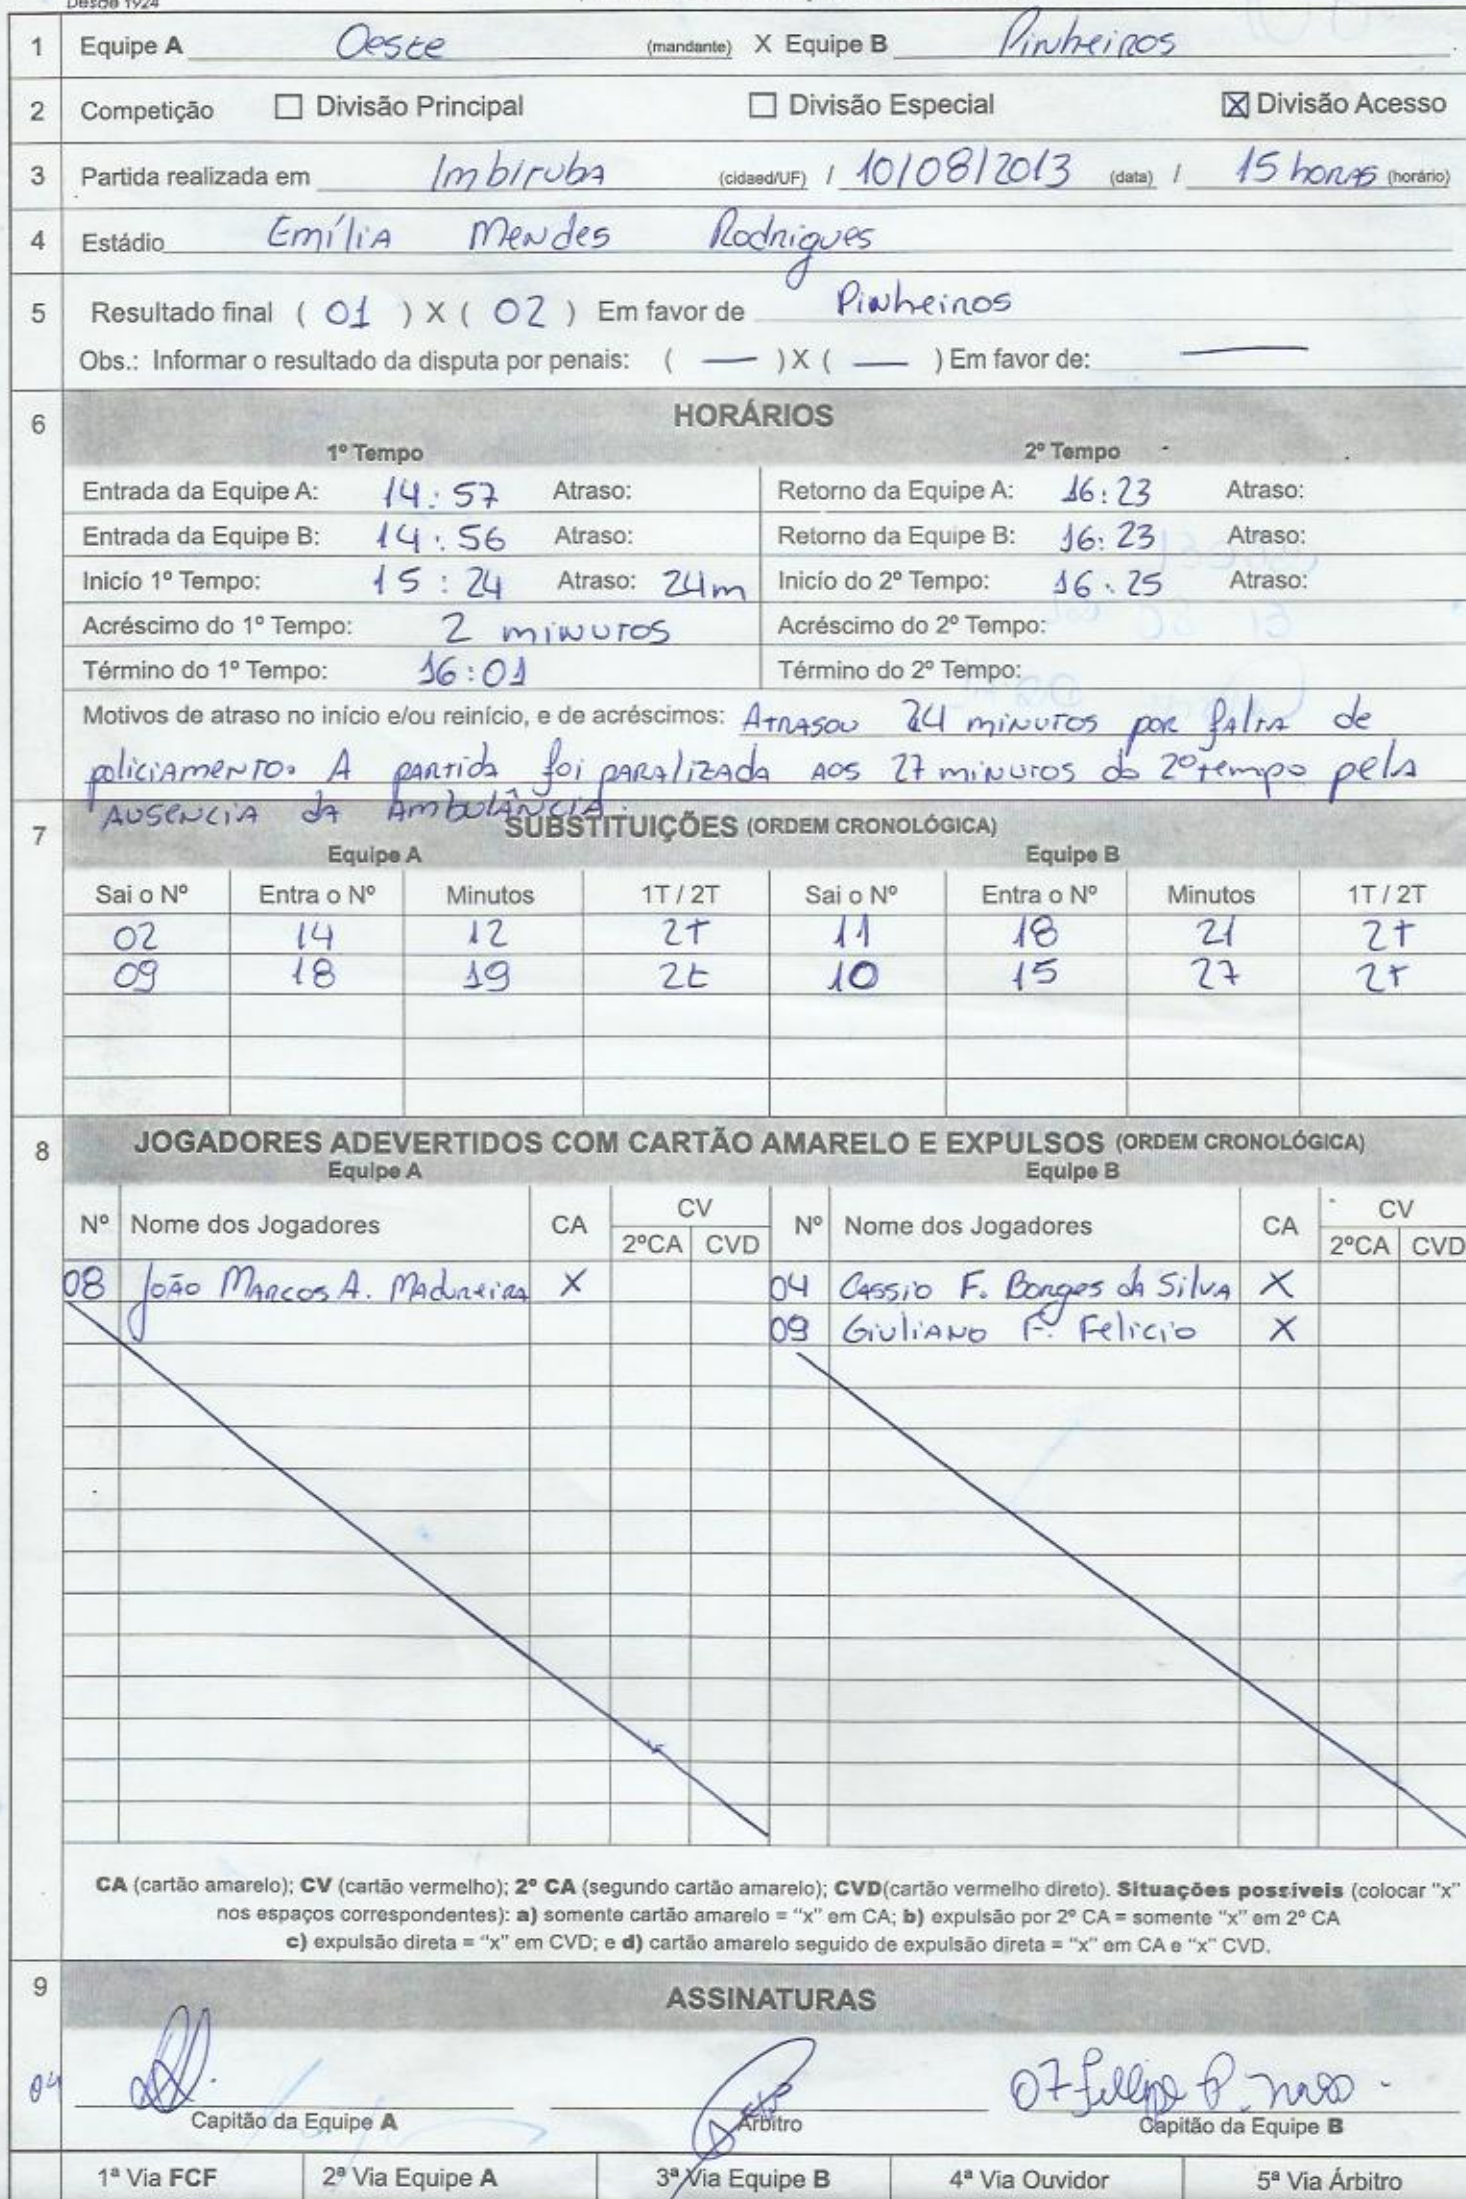 Desde 1924
1 Equipe A Oeste (mandante) X Equipe B Pinheiros
2 Competição ☐ Divisão Principal ☐ Divisão Especial ☒ Divisão Acesso
3 Partida realizada em Imbiruba (cidaed/UF) / 10/08/2013 (data) / 15 horas (horário)
4 Estádio Emília Mendes Rodrigues
5 Resultado final ( 01 ) X ( 02 ) Em favor de Pinheiros
Obs.: Informar o resultado da disputa por penais: ( — ) X ( — ) Em favor de: —
6 HORÁRIOS
1º Tempo 2º Tempo
Entrada da Equipe A: 14:57 Atraso: Retorno da Equipe A: 16:23 Atraso:
Entrada da Equipe B: 14:56 Atraso: Retorno da Equipe B: 16:23 Atraso:
Inicío 1º Tempo: 15:24 Atraso: 24m Inicío do 2º Tempo: 16.25 Atraso:
Acréscimo do 1º Tempo: 2 minutos Acréscimo do 2º Tempo:
Término do 1º Tempo: 16:01 Término do 2º Tempo:
Motivos de atraso no início e/ou reinício, e de acréscimos: Atrasou 24 minutos por falta de
policiamento. A partida foi paralizada aos 27 minutos do 2º tempo pela
ausencia da ambulância.
7 SUBSTITUIÇÕES (ORDEM CRONOLÓGICA)
Equipe A Equipe B
Sai o Nº Entra o Nº Minutos 1T / 2T Sai o Nº Entra o Nº Minutos 1T / 2T
02 14 12 2T 11 18 21 2T
09 18 19 2t 10 15 27 2T
8 JOGADORES ADEVERTIDOS COM CARTÃO AMARELO E EXPULSOS (ORDEM CRONOLÓGICA)
Equipe A Equipe B
Nº Nome dos Jogadores CA CV Nº Nome dos Jogadores CA CV
2ºCA CVD 2ºCA CVD
08 João Marcos A. Madureira X 04 Cassio F. Borges da Silva X
09 Giuliano F. Felicio X
CA (cartão amarelo); CV (cartão vermelho); 2º CA (segundo cartão amarelo); CVD(cartão vermelho direto). Situações possíveis (colocar "x"
nos espaços correspondentes): a) somente cartão amarelo = "x" em CA; b) expulsão por 2º CA = somente "x" em 2º CA
c) expulsão direta = "x" em CVD; e d) cartão amarelo seguido de expulsão direta = "x" em CA e "x" CVD.
9 ASSINATURAS
04 07
Capitão da Equipe A Árbitro Capitão da Equipe B
1ª Via FCF 2ª Via Equipe A 3ª Via Equipe B 4ª Via Ouvidor 5ª Via Árbitro